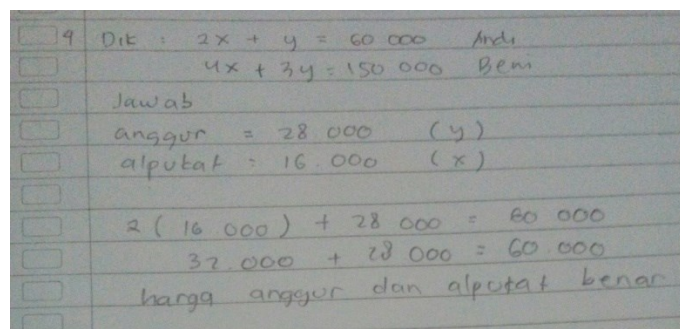 9 Dik : 2x + y = 60 000 Andi
4x + 3y = 150 000 Beni
Jawab
anggur = 28 000 (y)
alpukat = 16.000 (x)
2 ( 16 000) + 28 000 = 60 000
32.000 + 28 000 = 60.000
harga anggur dan alpukat benar